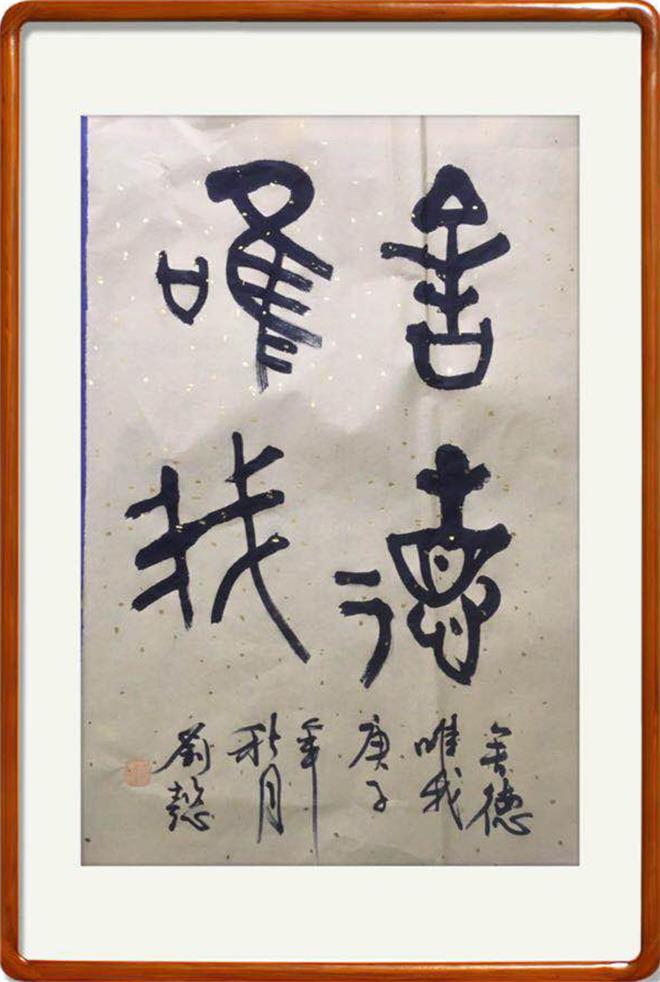 舍德
唯我
舍德
唯我
庚子
年
秋月
刘懿